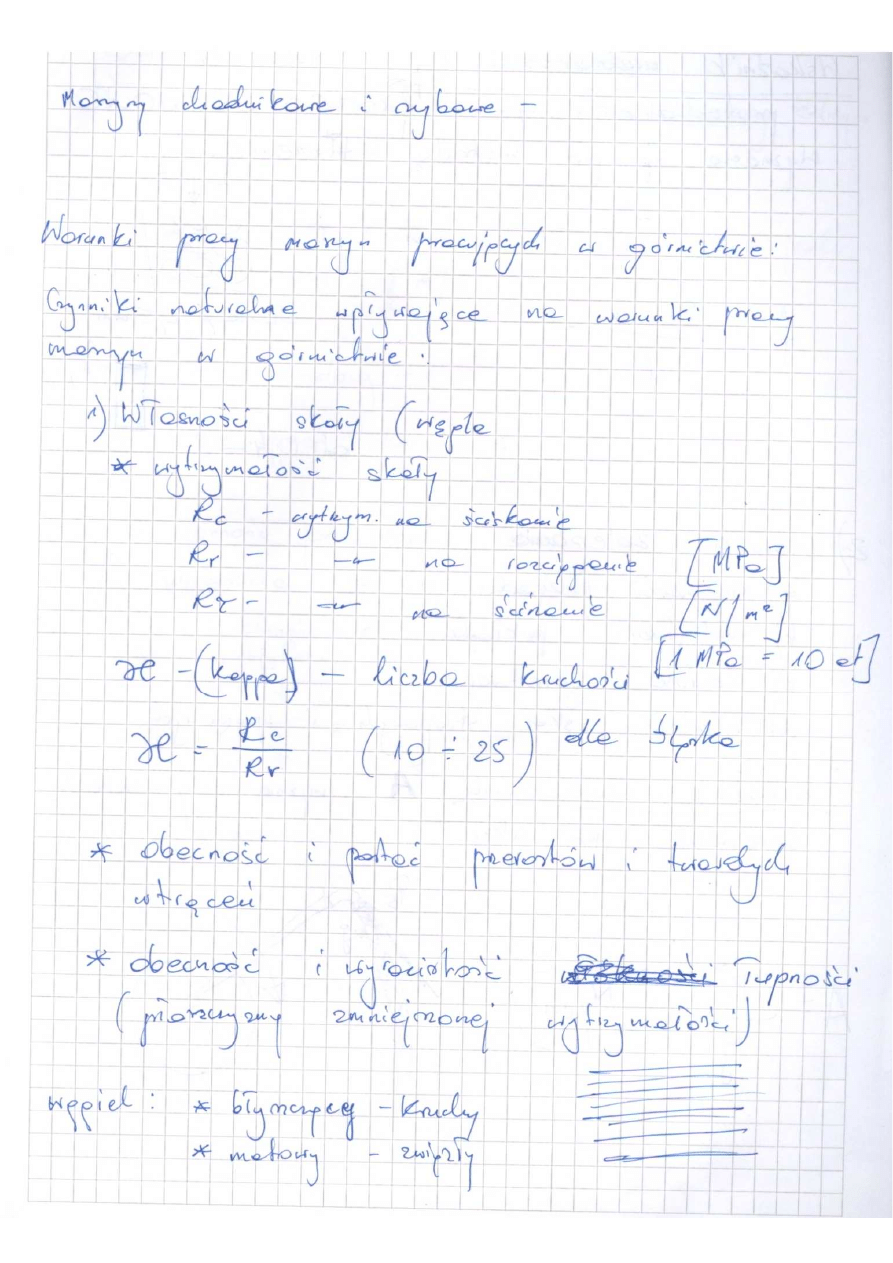 Maszyny chodnikowe i szybowe -
Warunki pracy maszyn pracujących w górnictwie:
Czynniki naturalne wpływające na warunki pracy
maszyn w górnictwie:
1) Własności skały (węgla
* wytrzymałość skały
Rc - wytrzym. na ściskanie
Rr - -"- na rozciąganie [MPa]
Rτ - -"- na ścinanie [N/m²]
ϰ - (kappa) - liczba kruchości [1 MPa = 10 at]
ϰ = Rc/Rr (10 ÷ 25) dla Śląska
* obecność i postać przerostów i twardych
wtrąceń
* obecność i wyrazistość łupności
(płaszczyzny zmniejszonej wytrzymałości)
węgiel: * błyszczący - kruchy
* matowy - zwięzły